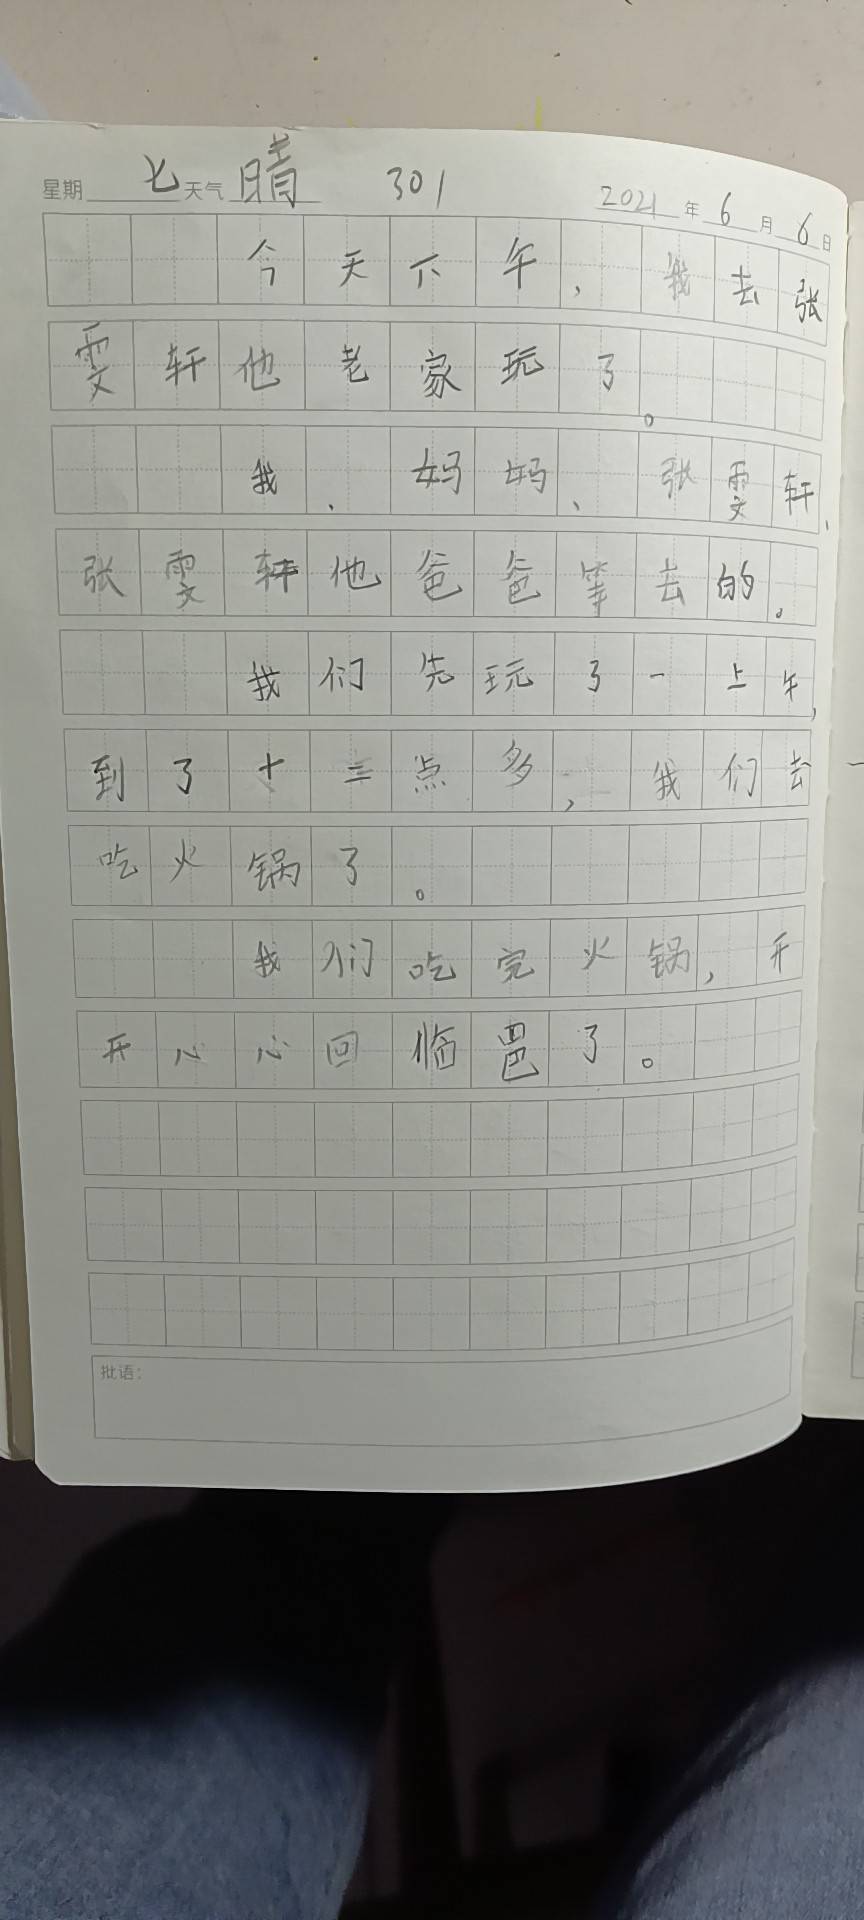 星期 七 天气 晴 301 2021 年 6 月 6 日
今天下午，我去张
雯轩他老家玩了。
我、妈妈、张雯轩、
张雯轩他爸爸等去的。
我们先玩了一上午，
到了十二点多，我们去
吃火锅了。
我们吃完火锅，开
开心心回临邑了。
批语：